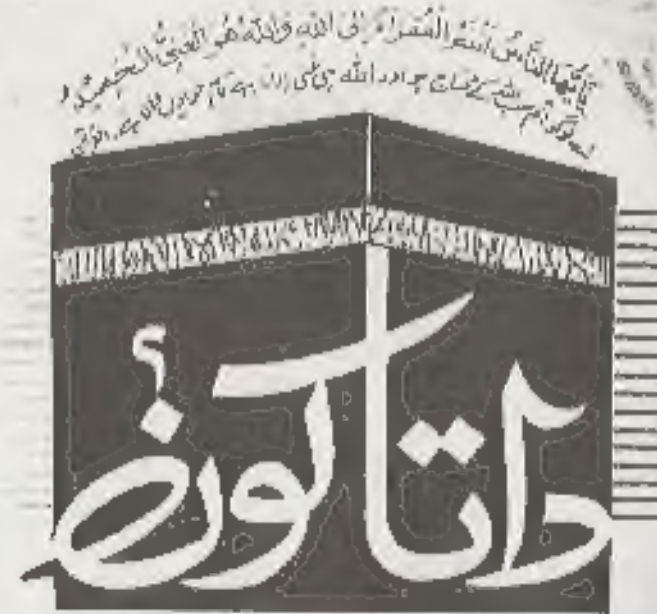 يَٰٓأَيُّهَا النَّاسُ أَنتُمُ الْفُقَرَآءُ إِلَى اللَّهِ وَاللَّهُ هُوَ الْغَنِيُّ الْحَمِيدُ
اے لوگو تم سب اللہ کے محتاج ہو اور اللہ ہی غنی ہے تمام خوبیوں والا ہے
داتا کون؟